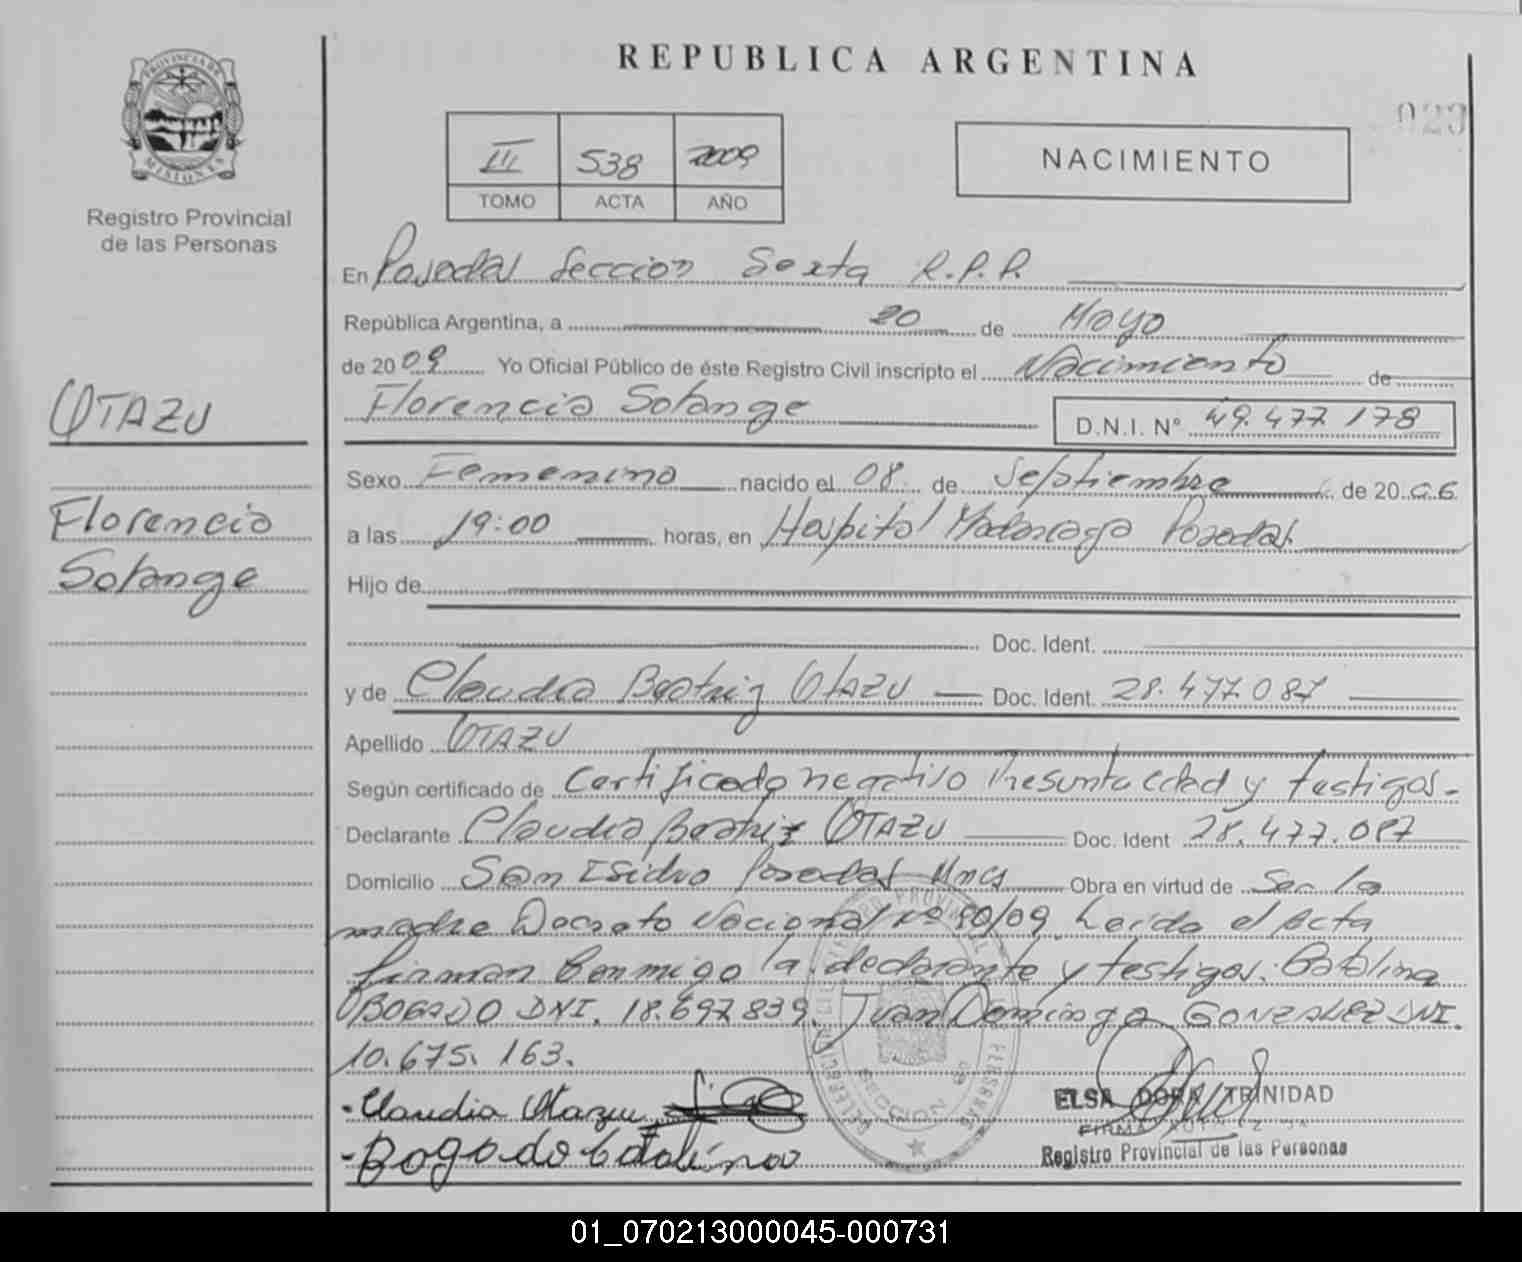 REPUBLICA ARGENTINA
PROVINCIA DE
MISIONES
Registro Provincial
de las Personas
023
III 538 2009
TOMO ACTA AÑO
NACIMIENTO
En Posadas Seccion Sexta R.P.P.
República Argentina, a 20 de Mayo
de 2009 Yo Oficial Público de éste Registro Civil inscripto el Nacimiento de
Florencia Solange D.N.I. Nº 49.477.178
OTAZU
Florencia
Solange
Sexo Femenino nacido el 08 de Septiembre de 2006
a las 19:00 horas, en Hospital Madariaga Posadas
Hijo de
Doc. Ident.
y de Claudia Beatriz OTAZU Doc. Ident. 28.477.087
Apellido OTAZU
Según certificado de Certificado negativo Presunta edad y testigos.-
Declarante Claudia Beatriz OTAZU Doc. Ident 28.477.087
Domicilio San Isidro Posadas Mnes Obra en virtud de Ser la
madre Decreto Nacional Nº 90/09. Leída el Acta
firman Conmigo la declarante y testigos. Catalina
BOGADO DNI. 18.697.839. Juan Domingo GONZALEZ DNI.
10.675.163.
SECCION 6ª
-Claudia Otazu
-Bogado Catalina
ELSA DORA TRINIDAD
Registro Provincial de las Personas
01_070213000045-000731